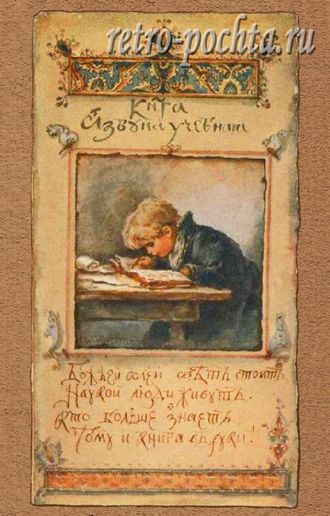 retro-pochta.ru
Книга
Азбука учебная
Божiей волей свѣтъ стоитъ
Наукой люди живутъ.
Кто больше знаетъ
Тому и книга въ руки.